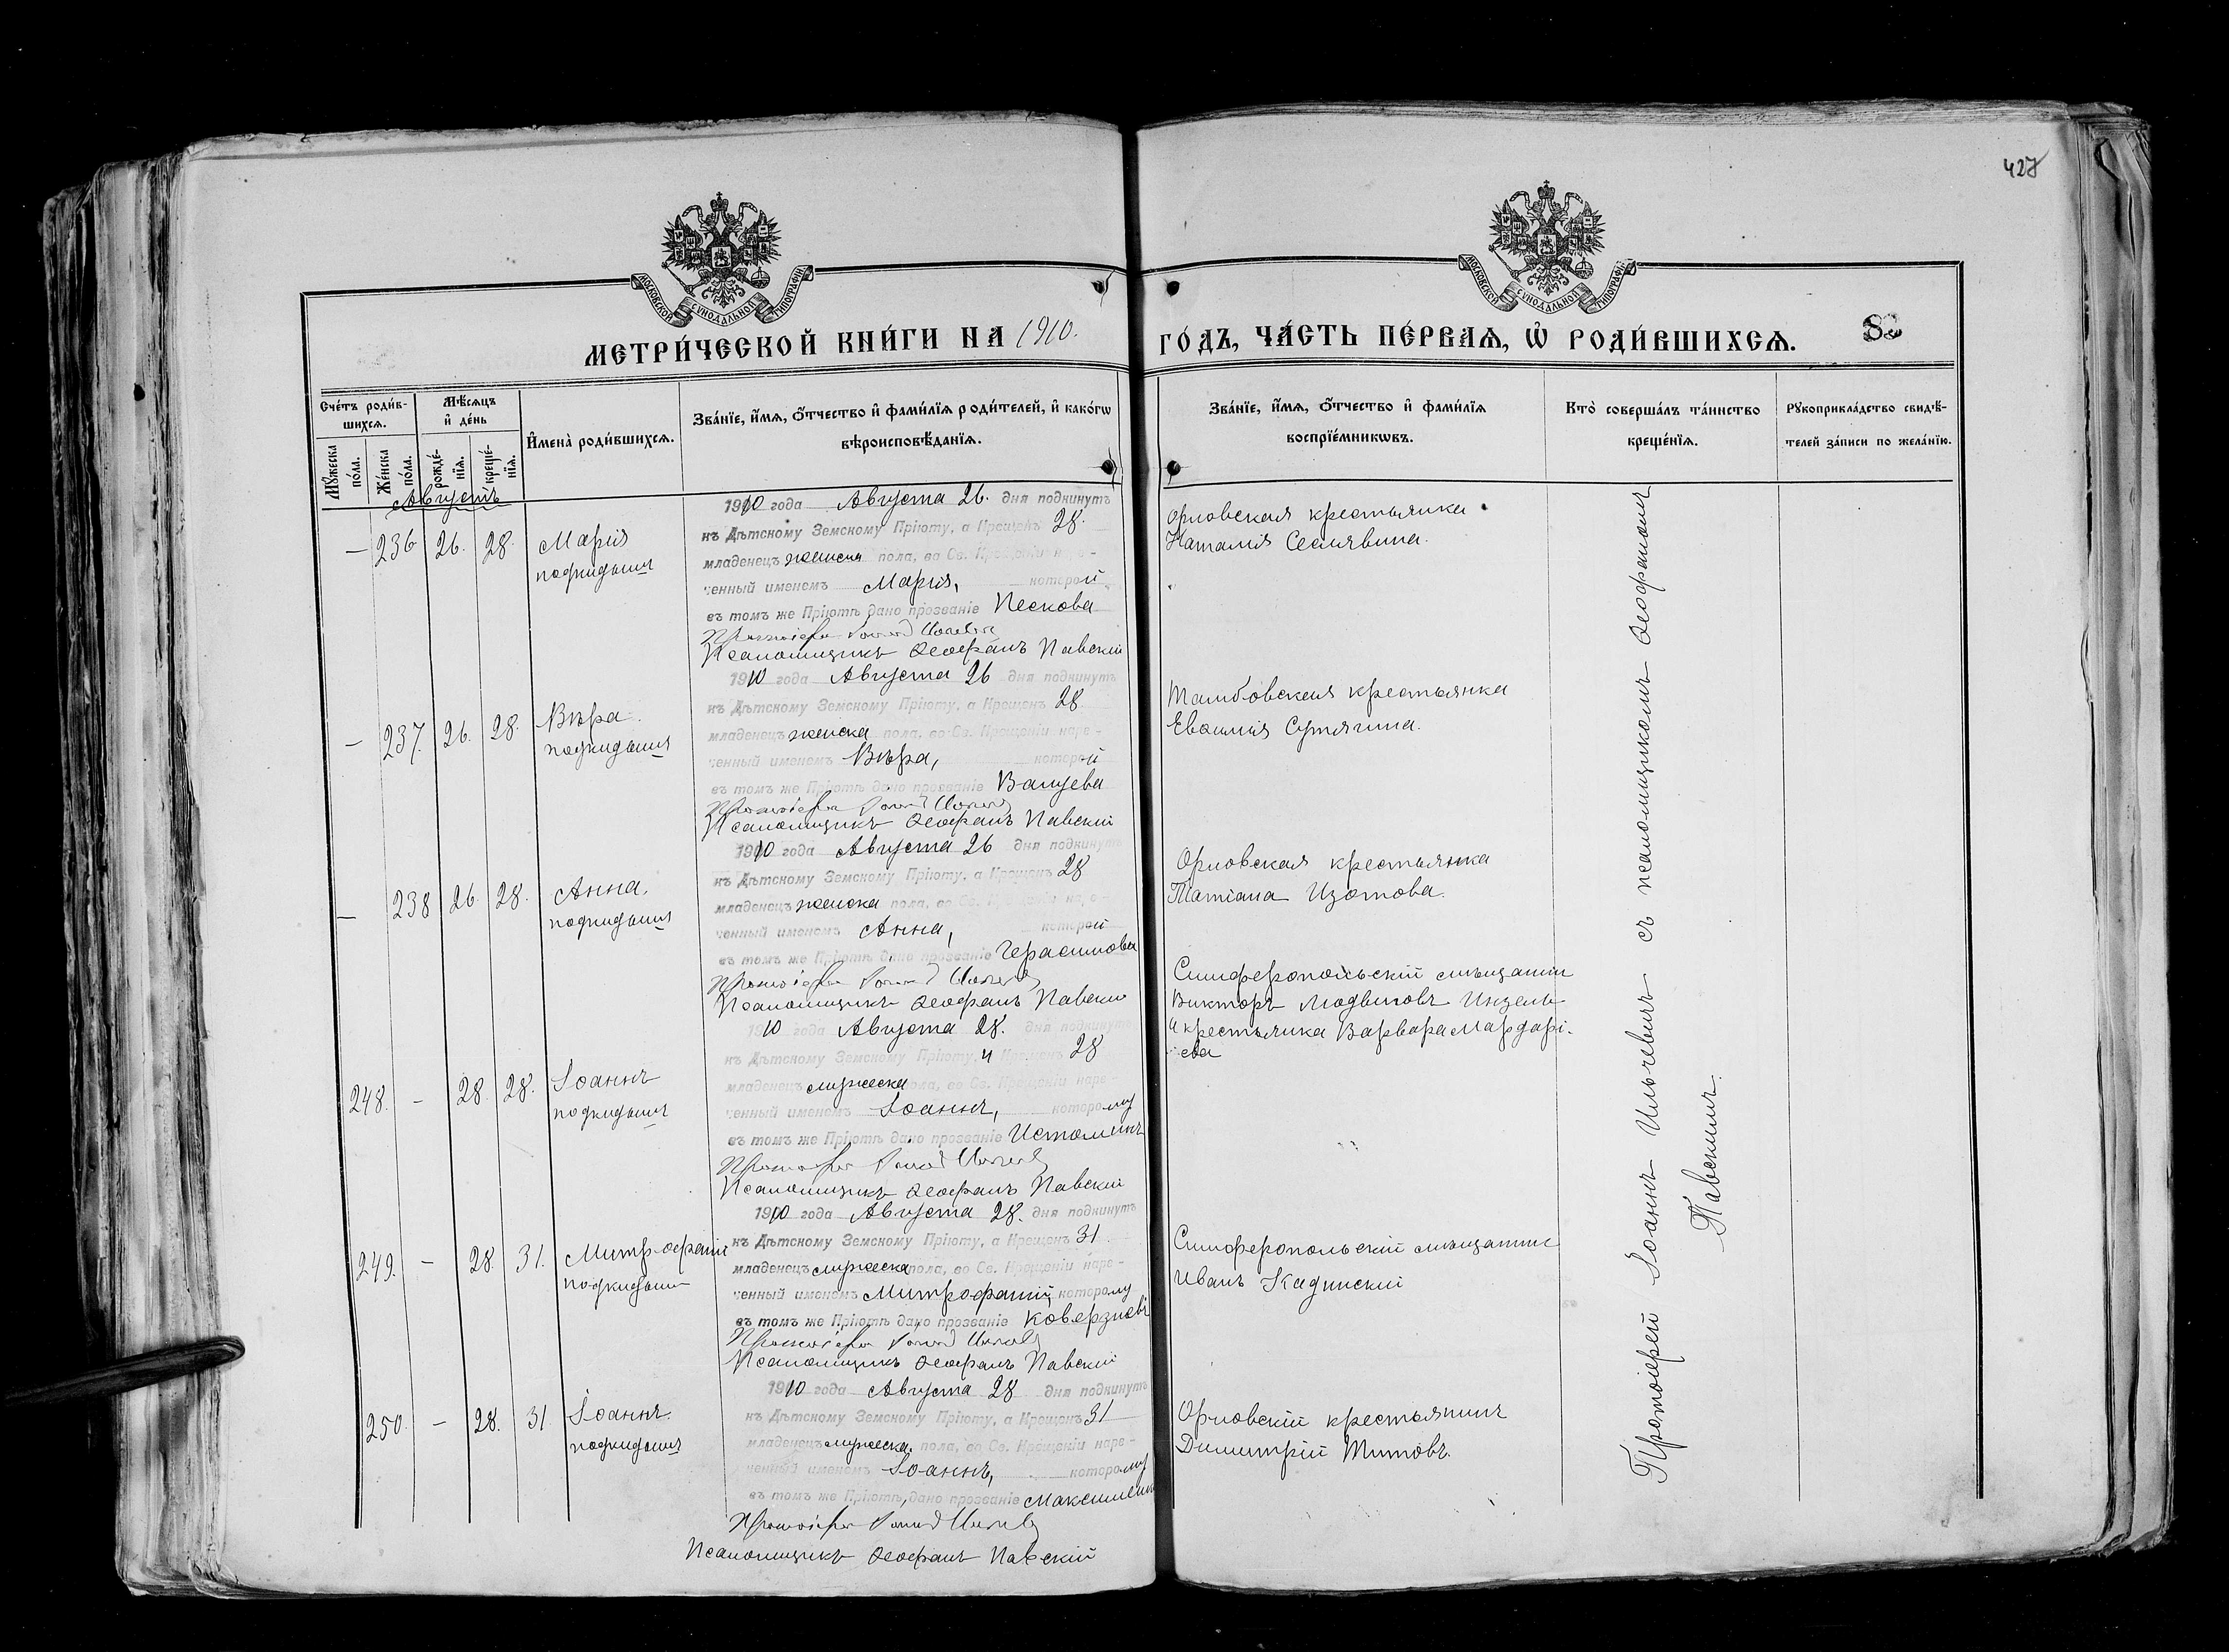 427
МОСКОВСКОЙ СѴНОДАЛЬНОЙ ТИПОГРАФІИ
МОСКОВСКОЙ СѴНОДАЛЬНОЙ ТИПОГРАФІИ
МЕТРИ́ЧЕСКОЙ КНИ́ГИ НА 1910. ГО́ДЪ, ЧА́СТЬ ПЕ́РВАѦ, Ѽ РОДИ́ВШИХСѦ.
Сче́тъ роди́в-
шихсѧ.
Мꙋ́жеска
по́ла.
Же́нска
по́ла.
Мѣ́сѧцъ
и҆ де́нь
рожде́-
нїѧ.
креще́-
нїѧ.
И҆мена̀ роди́вшихсѧ.
Зва́нїе, и҆́мѧ, ѻ҆́тчество и҆ фами́лїѧ роди́телей, и҆ како́гѡ
вѣроисповѣ́данїѧ.
Зва́нїе, и҆́мѧ, ѻ҆́тчество и҆ фами́лїѧ
воспрїе́мникѡвъ.
Кто̀ соверша́лъ та́инство
креще́нїѧ.
Рꙋкоприкла́дство свидѣ́-
телей за́писи по жела́нїю.
Августъ
— 236 26. 28. Марія
подкидышъ
1910 года Августа 26. дня подкинутъ
къ Дѣтскому Земскому Пріюту, а Крещенъ 28.
младенецъ женска пола, во Св. Крещеніи наре-
ченный именемъ Марія, которой
въ томъ же Пріютѣ дано прозваніе Пескова
Псаломщикъ Ѳеофанъ Павскій
Орловская крестьянка
Наталія Селявина.
— 237. 26. 28. Вѣра.
подкидышъ
1910 года Августа 26 дня подкинутъ
къ Дѣтскому Земскому Пріюту, а Крещенъ 28.
младенецъ женска пола, во Св. Крещеніи наре-
ченный именемъ Вѣра, которой
въ томъ же Пріютѣ дано прозваніе Ванцева
Псаломщикъ Ѳеофанъ Павскій
Тамбовская крестьянка
Евѳимія Сутягина.
— 238 26. 28. Анна.
подкидышъ
1910 года Августа 26 дня подкинутъ
къ Дѣтскому Земскому Пріюту, а Крещенъ 28
младенецъ женска пола, во Св. Крещеніи наре-
ченный именемъ Анна, которой
въ томъ же Пріютѣ дано прозваніе Герасимова
Псаломщикъ Ѳеофанъ Павскій
Орловская крестьянка
Татіана Изотова.
248. - 28. 28. Іоаннъ
подкидышъ
1910 года Августа 28. дня подкинутъ
къ Дѣтскому Земскому Пріюту, и Крещенъ 28
младенецъ мужеска пола, во Св. Крещеніи наре-
ченный именемъ Іоаннъ, которому
въ томъ же Пріютѣ дано прозваніе Истоминъ
Псаломщикъ Ѳеофанъ Павскій
Симферопольскій мѣщанин
Викторъ Людвиговъ
и крестьянка Варвара Мардарі-
ева
249. - 28. 31. Митрофаній
подкидышъ
1910 года Августа 28. дня подкинутъ
къ Дѣтскому Земскому Пріюту, а Крещенъ 31.
младенецъ мужеска пола, во Св. Крещеніи наре-
ченный именемъ Митрофаній, которому
въ томъ же Пріютѣ дано прозваніе Коверзневъ
Псаломщикъ Ѳеофанъ Павскій
Симферопольскій мѣщанинъ
Иванъ Кадинскій
250. - 28. 31 Іоаннъ.
подкидышъ
1910 года Августа 28 дня подкинутъ
къ Дѣтскому Земскому Пріюту, а Крещенъ 31
младенецъ мужеска пола, во Св. Крещеніи наре-
ченный именемъ Іоаннъ, которому
въ томъ же Пріютѣ, дано прозваніе
Псаломщикъ Ѳеофанъ Павскій
Орловскій крестьянинъ
Димитрій Титовъ.
Протоіерей Іоаннъ Ильчевичъ съ псаломщикомъ Ѳеофаномъ
Павскимъ.